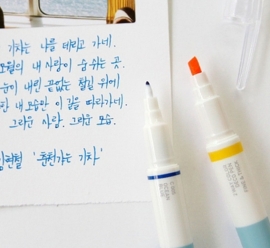 기차는 나를 데리고 가네.
오월의 내 사랑이 숨 쉬는 곳.
눈이 내린 끝없는 철길 위에
한 내 모습만 이 길을 따라가네.
그리운 사람. 그리운 모습.
김현철 '춘천가는 기차'